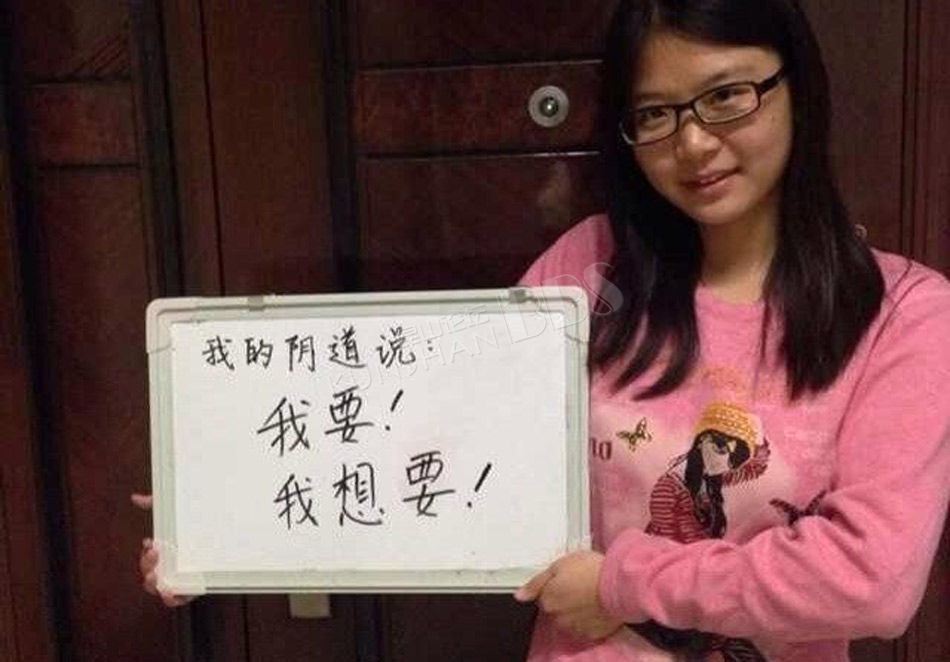 我的阴道说：
我要！
我想要！
BBS